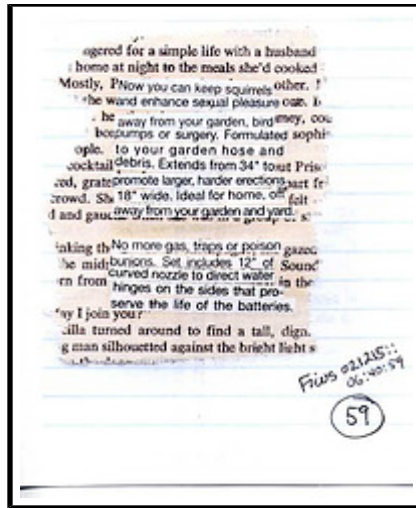 ngered for a simple life with a husband
home at night to the meals she'd cooked
Mostly, P Now you can keep squirrels other.
he w and enhance sexual pleasure
he away from your garden, bird ney, cou
be pumps or surgery. Formulated sophi
ople. to your garden hose and
ocktail debris. Extends from 34" to ut Pris
ed, grate promote larger, harder erections, part fr
rowd. Sh 18" wide. Ideal for home, off felt
d and gauc away from your garden and yard.
nking th No more gas, traps or poison gazed
he mid bunions. Set includes 12" of Soun
curved nozzle to direct water
rn from hinges on the sides that pro- in the
serve the life of the batteries.
ay I join you?
illa turned around to find a tall, dign
g man silhouetted against the bright light s
Ficus 021215::
06:40:59
59